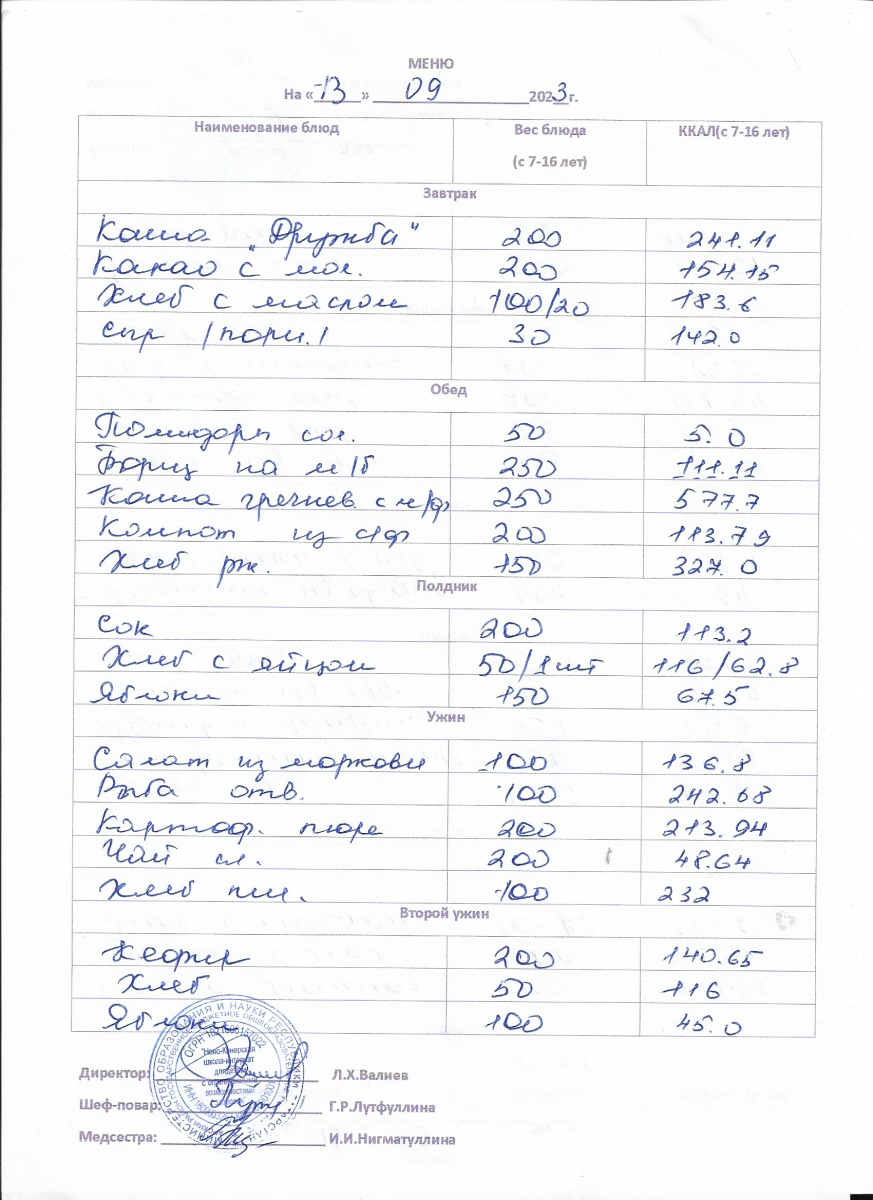 МЕНЮ
На «13» 09 2023 г.
Наименование блюд Вес блюда (с 7-16 лет) ККАЛ(с 7-16 лет)
Завтрак
Каша „Дружба" 200 241.11
Какао с мол. 200 154.15
Хлеб с маслом 100/20 183.6
Сыр /порц./ 30 142.0
Обед
Помидоры сол. 50 5.0
Борщ на м/б 250 111.11
Каша гречнев. с м/ф 250 577.7
Компот из с/ф 200 113.79
Хлеб рж. 150 327.0
Полдник
Сок 200 113.2
Хлеб с яйцом 50/1 шт 116/62.8
Яблоки 150 67.5
Ужин
Салат из моркови 100 136.8
Рыба отв. 100 242.68
Картоф. пюре 200 213.94
Чай сл. 200 48.64
Хлеб пш. 100 232
Второй ужин
Кефир 200 140.65
Хлеб 50 116
Яблоки 100 45.0
МИНИСТЕРСТВО ОБРАЗОВАНИЯ И НАУКИ РЕСПУБЛИКИ ТАТАРСТАН
"Ново-Кинерская
школа-интернат
для детей
с ограниченными
возможностями
Директор: Л.Х.Валиев
Шеф-повар: Г.Р.Лутфуллина
Медсестра: И.И.Нигматуллина